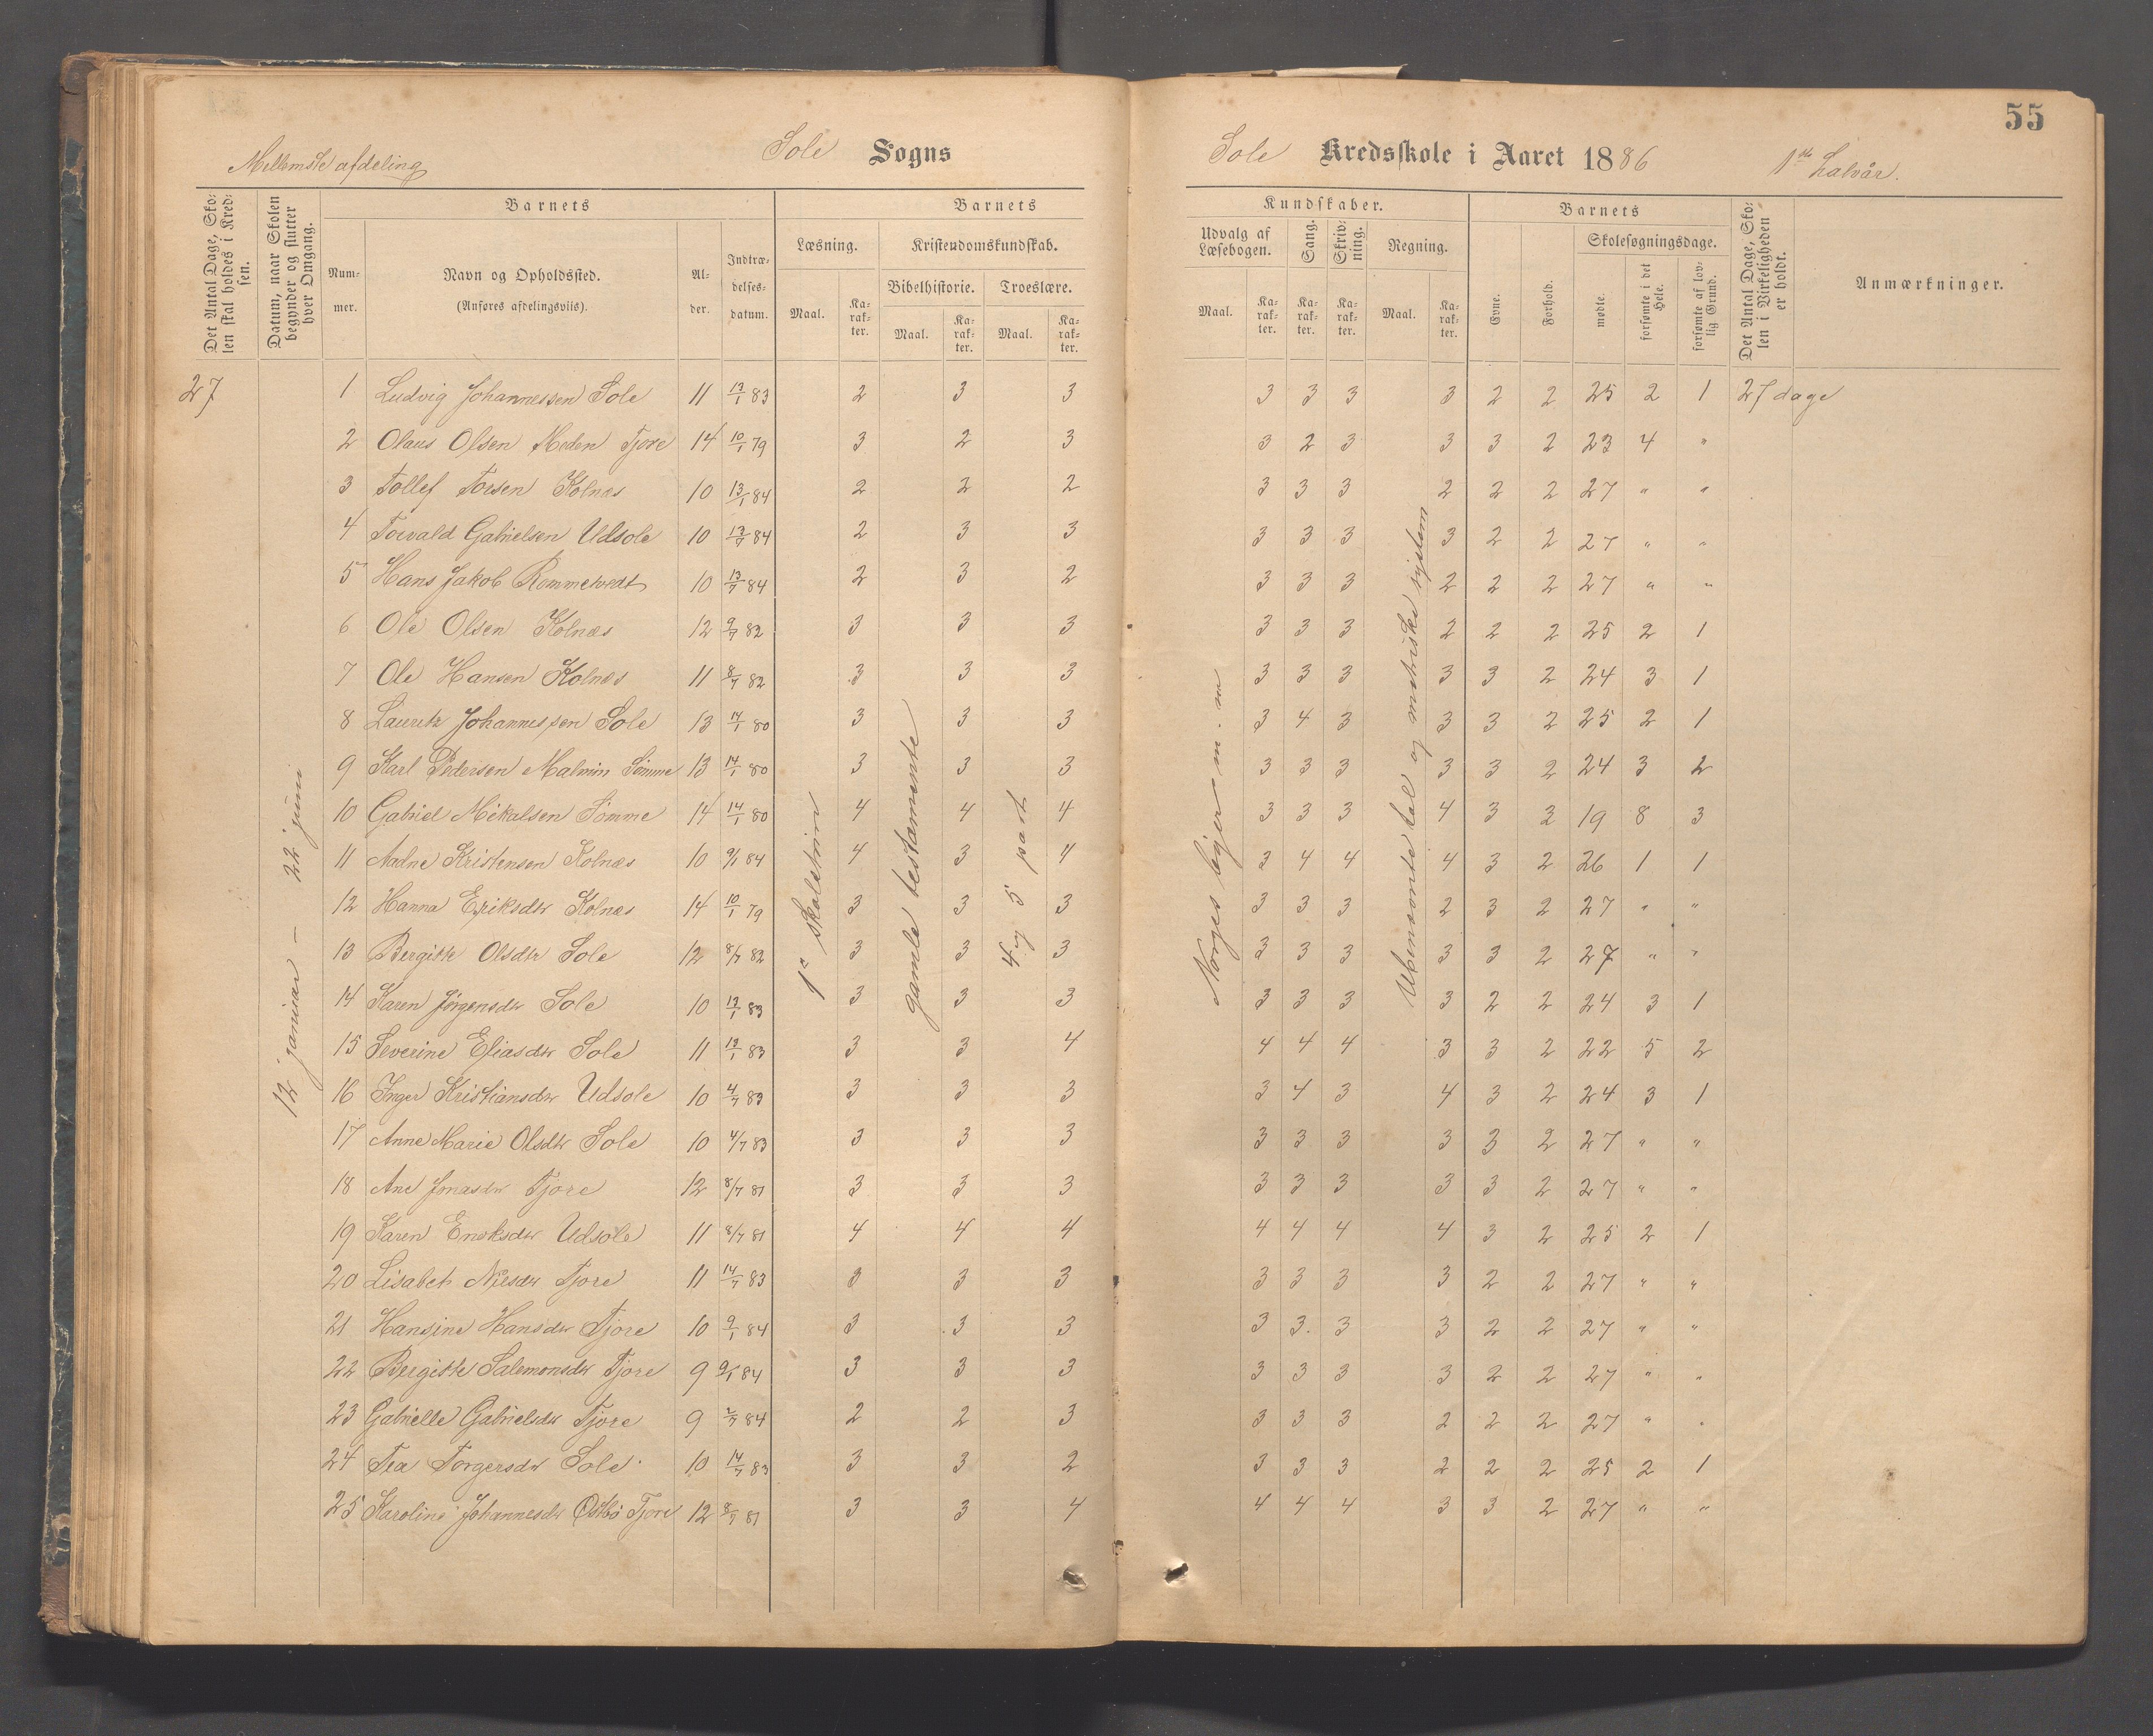 55
Mellemste afdeling
Sole Sogns
Sole Kredsskole i Aaret 1886 1ste halvår.
Det Antal Dage, Skolen skal holdes i Kredsen.
Datum, naar Skolen begynder og slutter hver Omgang.
Barnets
Nummer.
Navn og Opholdssted.
(Anføres afdelingsviis).
Alder.
Indtrædelsesdatum.
Barnets
Læsning.
Maal. Karakter.
Kristendomskundskab.
Bibelhistorie. Troeslære.
Maal. Karakter. Maal. Karakter.
Kundskaber.
Udvalg af Læsebogen.
Maal. Karakter.
Sang. Karakter.
Skrivning. Karakter.
Regning.
Maal. Karakter.
Barnets
Evne. Forhold.
Skolesøgningsdage.
mødte. forsømte i det Hele. forsømte af lovlig Grund.
Det Antal Dage, Skolen i Virkeligheden er holdt.
Anmærkninger.
27
12 januar – 22 juni
1ste skoletrin
gamle testamente
4 og 5 part
Norges löger m. m
Ubenævnte tal og metriske system
1 Ludvig Johannessen Sole 11 13/1 83 2 3 3 3 3 3 3 2 2 25 2 1 27 dage
2 Olaus Olsen Meden Tjore 14 10/1 79 3 2 3 3 2 3 3 3 2 23 4 "
3 Tollef Torsen Kolnæs 10 13/1 84 2 2 2 3 3 3 2 2 2 27 " "
4 Torvald Gabrielsen Udsole 10 13/7 84 2 3 3 3 3 3 3 2 2 27 " "
5 Hans Jakob Rommetvedt 10 13/7 84 2 3 2 3 3 3 2 2 2 27 " "
6 Ole Olsen Kolnæs 12 9/7 82 3 3 3 3 3 3 2 2 2 25 2 1
7 Ole Hansen Kolnæs 11 8/7 82 3 3 3 3 3 3 3 3 2 24 3 1
8 Lauritz Johannessen Sole 13 14/1 80 3 3 3 3 4 3 3 3 2 25 2 1
9 Karl Pedersen Malmin Sömme 13 14/1 80 3 3 3 3 3 3 3 3 2 24 3 2
10 Gabriel Mikalsen Sömme 14 14/1 80 4 4 4 3 3 3 4 3 2 19 8 3
11 Aadne Kristensen Kolnæs 10 9/1 84 4 3 4 3 4 4 4 3 2 26 1 1
12 Hanna Eriksdtr Kolnæs 14 10/1 79 3 3 3 3 3 3 2 3 2 27 " "
13 Bergitte Olsdtr Sole 12 8/7 82 3 3 3 3 3 3 3 3 2 27 " "
14 Karen Jörgensdtr Sole 10 13/1 83 3 3 3 3 3 3 3 2 2 24 3 1
15 Severine Eliasdtr Sole 11 13/1 83 3 3 4 4 4 4 3 3 2 22 5 2
16 Inger Kristiansdtr Udsole 10 4/7 83 3 3 3 3 4 3 4 3 2 24 3 1
17 Anne Marie Olsdtr Sole 10 4/7 83 3 3 3 3 3 3 3 3 2 27 " "
18 Ane Jonasdtr Tjore 12 8/7 81 3 3 3 3 3 3 3 3 2 27 " "
19 Karen Enoksdtr Udsole 11 8/7 81 4 4 4 4 4 4 4 3 2 25 2 1
20 Lisabet Nilsdtr Tjore 11 14/7 83 3 3 3 3 3 3 3 2 2 27 " "
21 Hansine Hansdtr Tjore 10 9/1 84 3 3 3 3 3 3 3 2 2 27 " "
22 Bergitte Salemonsdtr Tjore 9 9/1 84 3 3 3 3 3 3 3 2 2 27 " "
23 Gabrielle Gabrielsdtr Tjore 9 2/7 84 2 2 3 3 3 3 2 2 2 27 " "
24 Tea Torgersdtr Sole 10 14/7 83 3 3 2 3 3 3 2 2 2 25 2 1
25 Karoline Johannesdtr Östbö Tjore 12 8/7 81 3 3 4 4 4 4 3 3 2 27 " "